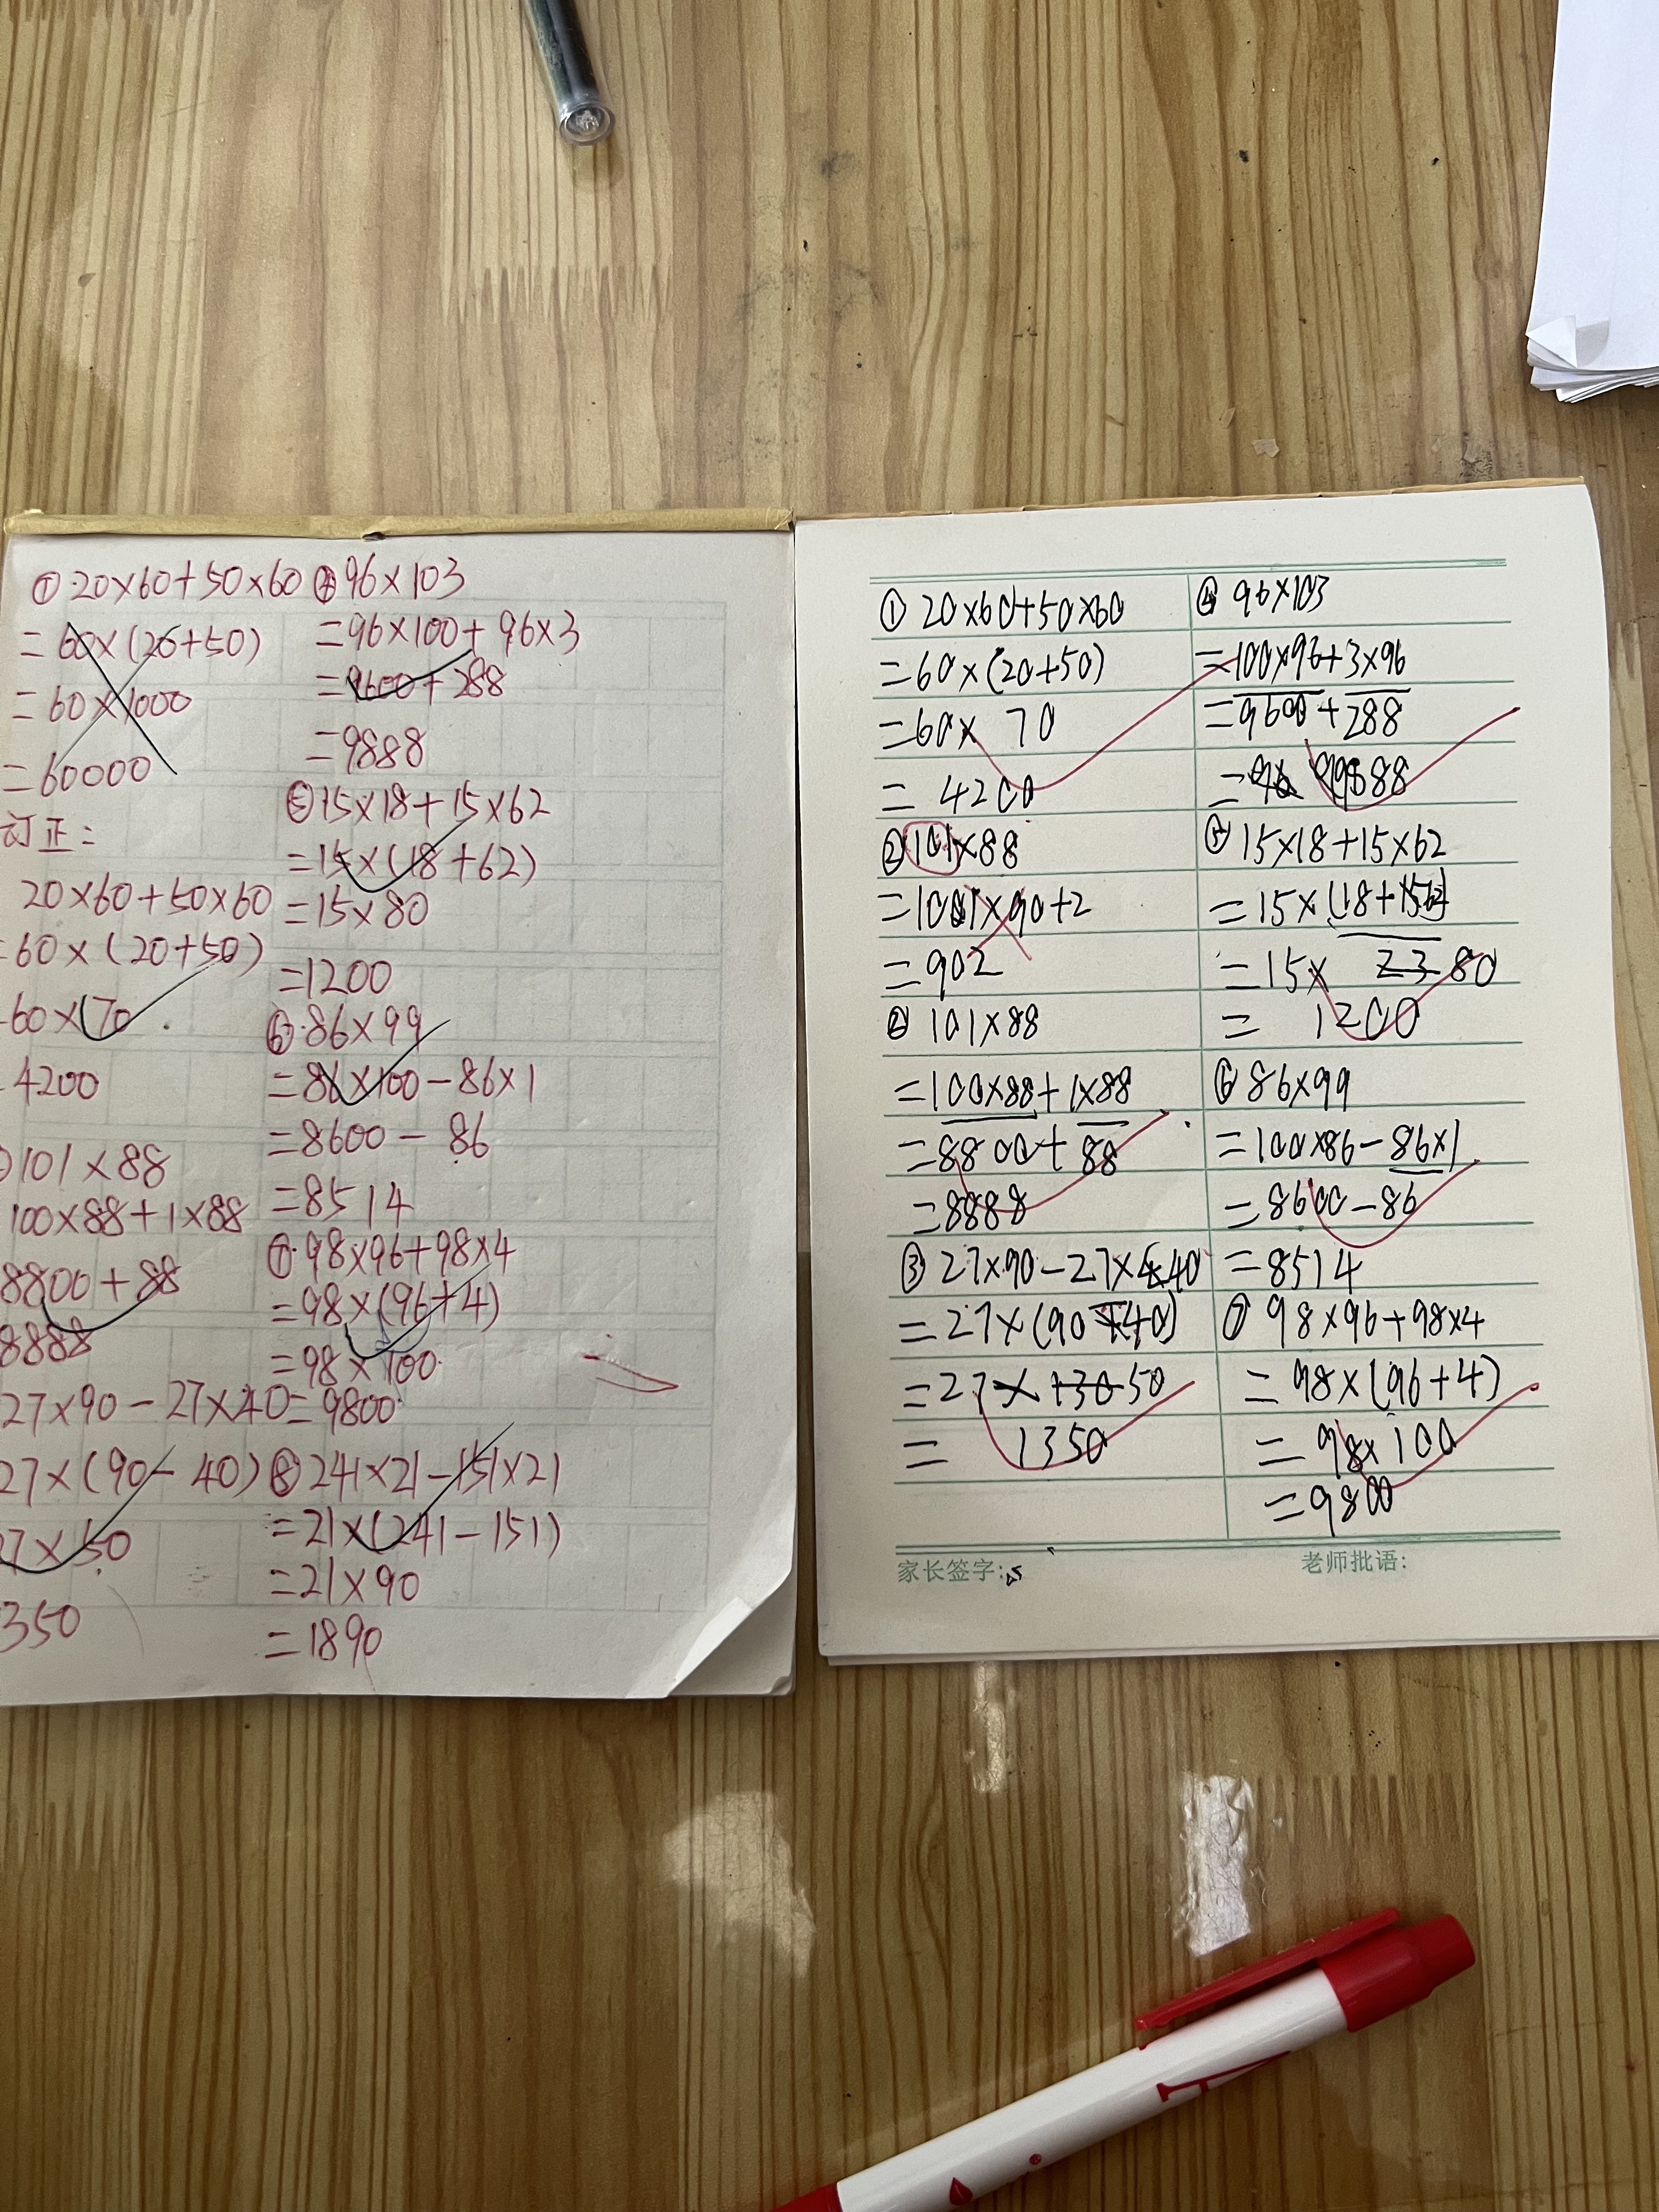 ① 20×60+50×60
=60×(20+50)
=60×1000
=60000
订正:
20×60+50×60
=60×(20+50)
=60×70
4200
101×88
100×88+1×88
8800+88
8888
27×90-27×40
27×(90-40)
7×50
350
④ 96×103
=96×100+96×3
=9600+288
=9888
⑤ 15×18+15×62
=15×(18+62)
=15×80
=1200
⑥ 86×99
=86×100-86×1
=8600-86
=8514
⑦ 98×96+98×4
=98×(96+4)
=98×100
=9800
⑧ 241×21-151×21
=21×(241-151)
=21×90
=1890
① 20×60+50×60
=60×(20+50)
=60×70
=4200
② 101×88
=1001×90+2
=902
② 101×88
=100×88+1×88
=8800+88
=8888
③ 27×90-27×40
=27×(90-40)
=27×50
=1350
④ 96×103
=100×96+3×96
=9600+288
=9888
⑤ 15×18+15×62
=15×(18+62)
=15×80
=1200
⑥ 86×99
=100×86-86×1
=8600-86
=8514
⑦ 98×96+98×4
=98×(96+4)
=98×100
=9800
家长签字:
老师批语: